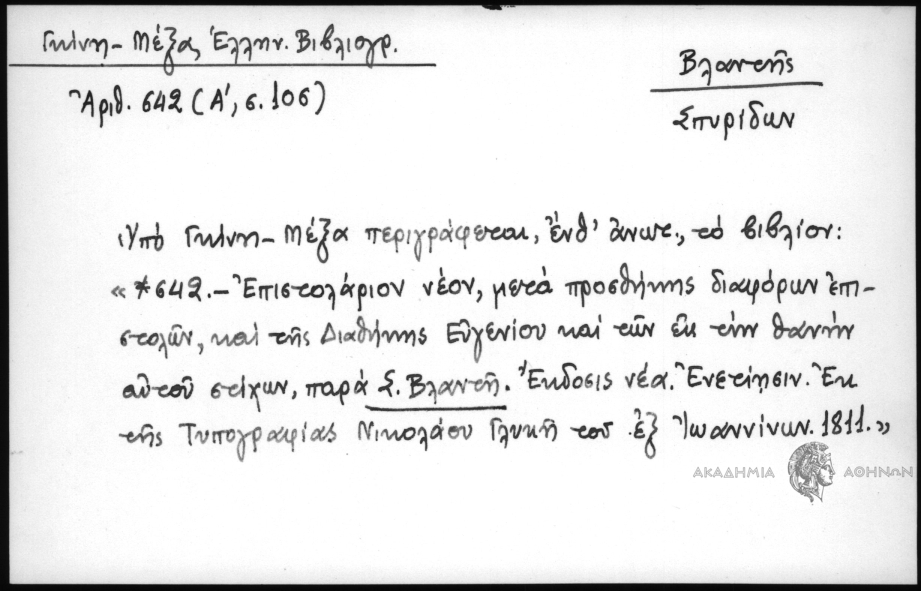 Γκίνη - Μέξας Ἑλλην. Βιβλιογρ.
Ἀριθ. 642 (Α', σ. 106)
Βλαντῆς
Σπυρίδων
Ὑπό Γκίνη - Μέξα περιγράφεται, ἔνθ' ἄνωτ., τό βιβλίον:
« *642. - Ἐπιστολάριον νέον, μετά προσθήκης διαφόρων ἐπι-
στολῶν, καί τῆς Διαθήκης Εὐγενίου καί τῶν εἰς τήν θανήν
αὐτοῦ στίχων, παρά Σ. Βλαντῆ. Ἔκδοσις νέα. Ἐνετίησιν. Ἐκ
τῆς Τυπογραφίας Νικολάου Γλυκῆ τοῦ ἐξ Ἰωαννίνων. 1811. »
ΑΚΑΔΗΜΙΑ ΑΘΗΝΩΝ